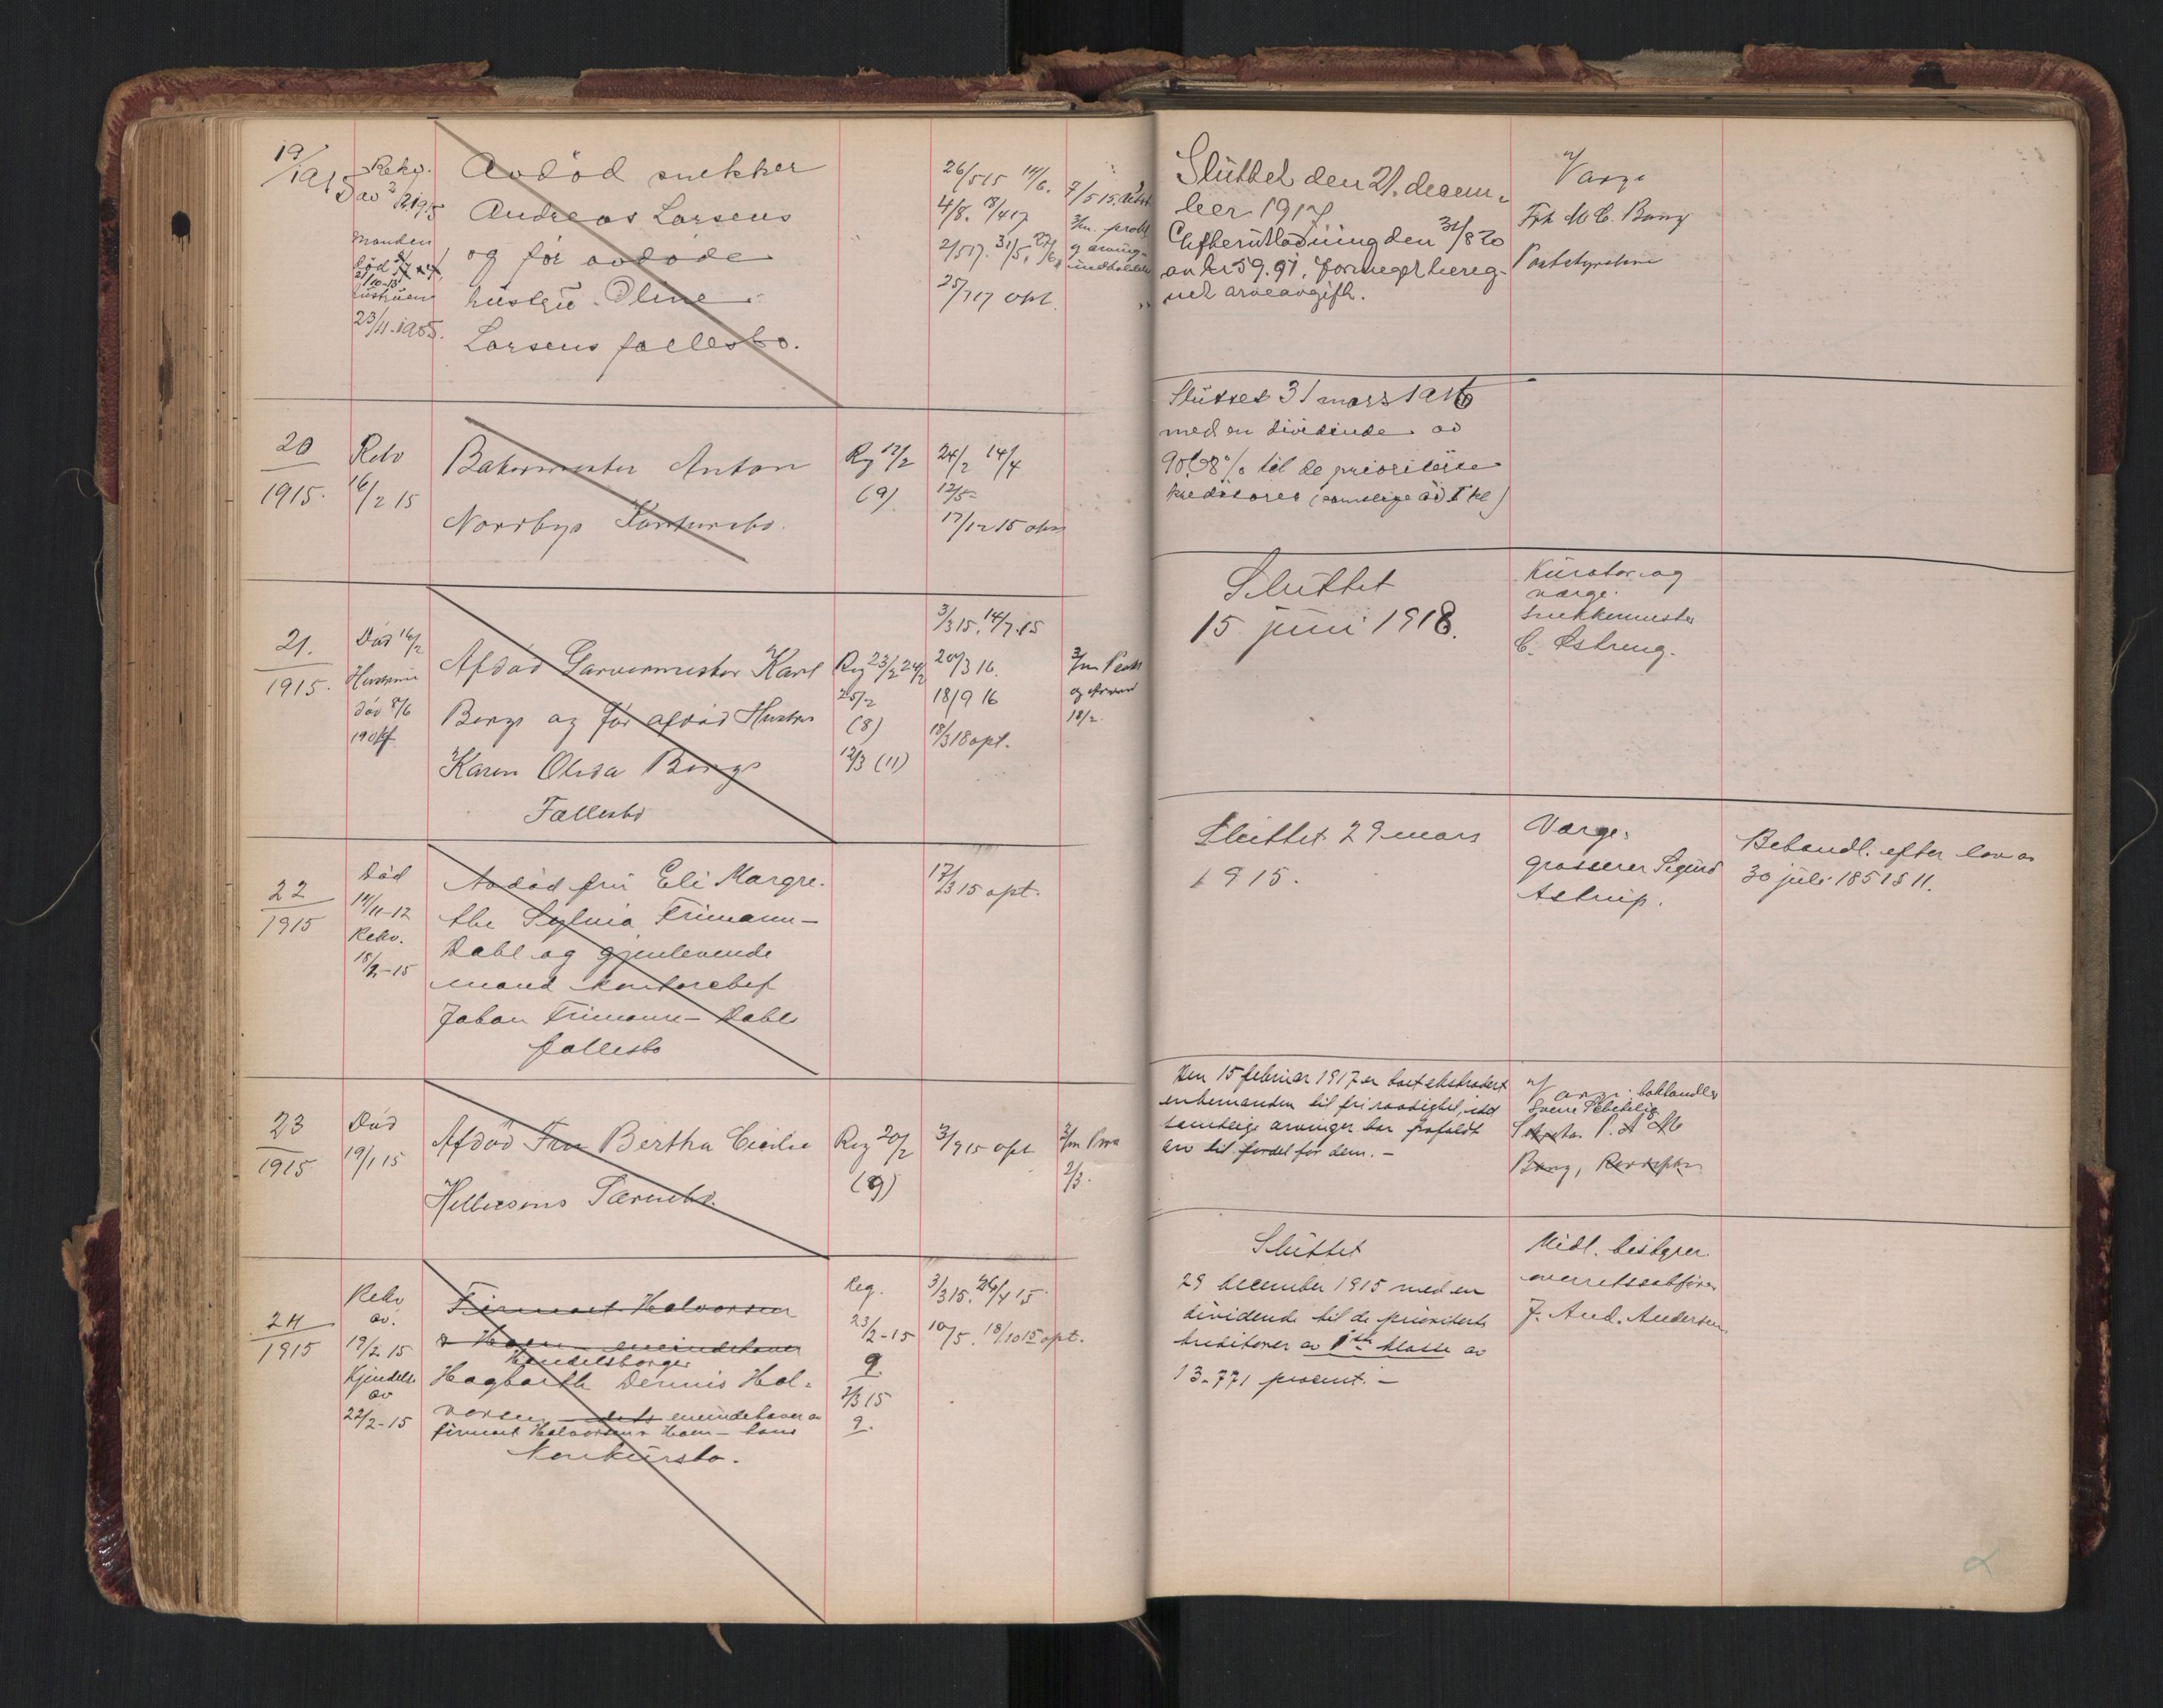 19/1915
Rekv.
av 2/2 1915
Manden
død
21/10-13
hustruen
23/11-1905.
Avdød snekker
Andreas Larsens
og før avdøde
hustru Oline
Larsens fællesbo.
26/5 15 14/6.
4/8. 8/4 17
2/5 17. 31/5,
25/7 17 opt.
7/5 15.
3/m. prokl.
Sluttet den 21. decem-
ber 1917
Efterutlodning den 31/8 20
av kr 59.91, formeget bereg-
net arveavgift.
Værge
Frk M C. Bang
Poststyrelsen
20
1915.
Rekv
16/2 15
Bakermester Anton
Nordbys Konkursbo.
Rg 17/2
(9)
24/2 14/4
12/5
17/12 15 opt
Sluttet 31 mars 1916
med en dividende av
til de prioriterte
kreditorer (samtlige av I kl)
21.
1915.
Død 16/2
Hustruen
død 8/6
Afdød Garvermester Karl
Bergs og før afdød Hustru
Karen Olida Bergs
Fællesbo
Reg 23/2 24/2
25/2
(8)
12/3 (11)
3/3 15. 14/7.15
20/3 16.
18/9 16
18/3 18 opt.
3/m
18/2.
Sluttet
15 juni 1918.
Kurator og
værge:
snekkermester
C. Østreng.
22
1915
Død
14/11-12
Rekv.
18/2-15
Avdød fru Eli Margre-
the Sylvia Frimann-
Dahl og gjenlevende
mand kontorchef
Johan Frimann-Dahls
fællesbo
17/3 15 opt.
Sluttet 29 mars
1915.
Værge:
grosserer Sigurd
Astrup.
Behandl. efter lov av
30 juli 1851 § 11.
23
1915
Død
19/1 15
Afdød Fru Bertha Cecilie
Hellesens Særnebo.
Reg 20/2
(9)
3/9 15 opt
3/m Pro
2/3.
Den 15 februar 1917 er boet ekstradert
enkemanden til fri raadighet, idet
samtlige arvinger har frafaldt
arv til fordel for dem. -
Værge: bokhandler
P. A. M.
Bang,
24
1915
Rekv
av.
19/2 15
Kjendelse
av
22/2-15
Firmaet Halvorsen
& Hoen - eneindehaver
Handelsborger
Hagbarth Dennis Hal-
vorsen - dets eneindehaver av
firmaet Halvorsen & Hoen - hans
Konkursbo.
Reg.
23/2-15
9
2/3 15
9.
3/3 15. 26/4 15
10/5. 18/10 15 opt.
Sluttet
29 december 1915 med en
dividende til de prioriterte
kreditorer av 1ste klasse av
13.771 procent. -
Midl. bestyrer
overretssakfører
J. And. Andersen